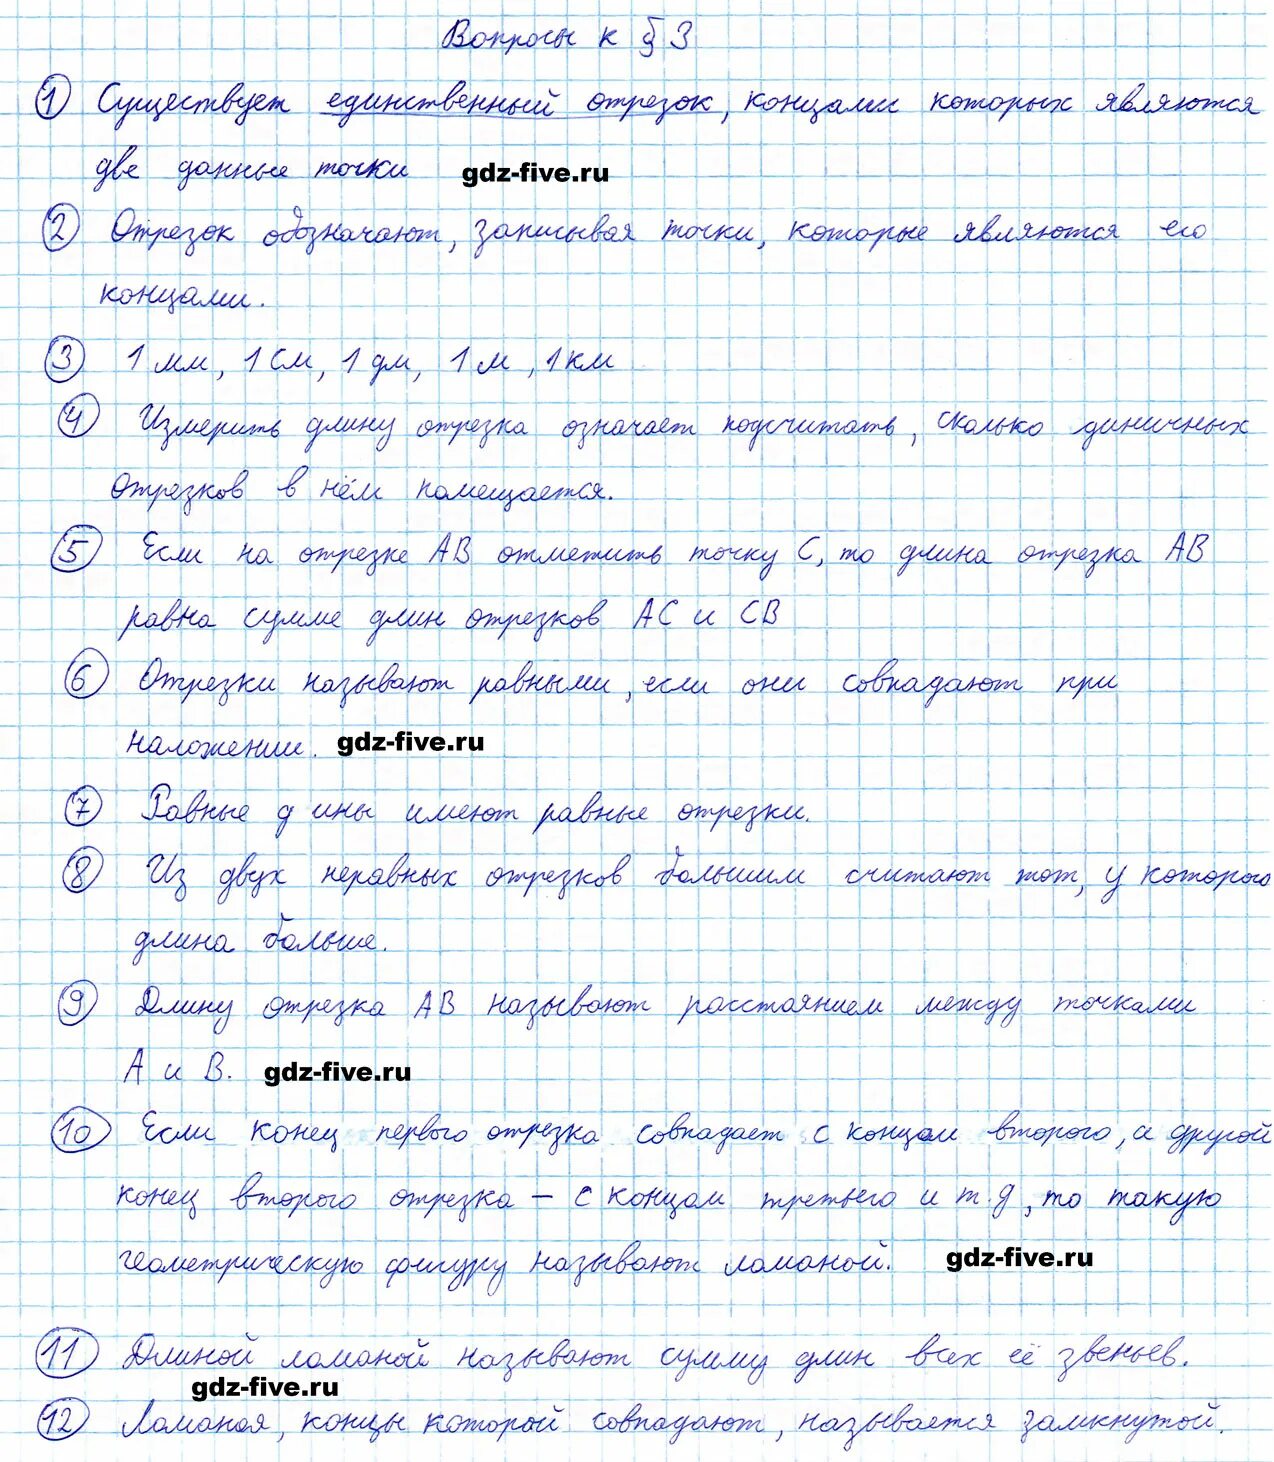 Вопросы к § 3
① Существует единственный отрезок, концами которых являются
две данные точки gdz-five.ru
② Отрезок обозначают, записывая точки, которые являются его
концами.
③ 1 мм, 1 см, 1 дм, 1 м, 1 км
④ Измерить длину отрезка означает подсчитать, сколько диничных
отрезков в нём помещается.
⑤ Если на отрезке AB отметить точку C, то длина отрезка AB
равна сумме длин отрезков AC и CB
⑥ Отрезки называют равными, если они совпадают при
наложении. gdz-five.ru
⑦ Равные д ины имеют равные отрезки.
⑧ Из двух неравных отрезков большим считают тот, у которого
длина больше.
⑨ Длину отрезка AB называют расстоянием между точками
A и B. gdz-five.ru
⑩ Если конец первого отрезка совпадает с концом второго, а другой
конец второго отрезка – с концом третьего и т.д, то такую
геометрическую фигуру называют ломаной. gdz-five.ru
⑪ Длиной ломаной называют сумму длин всех её звеньев.
gdz-five.ru
⑫ Ломаная, концы которой совпадают, называется замкнутой.